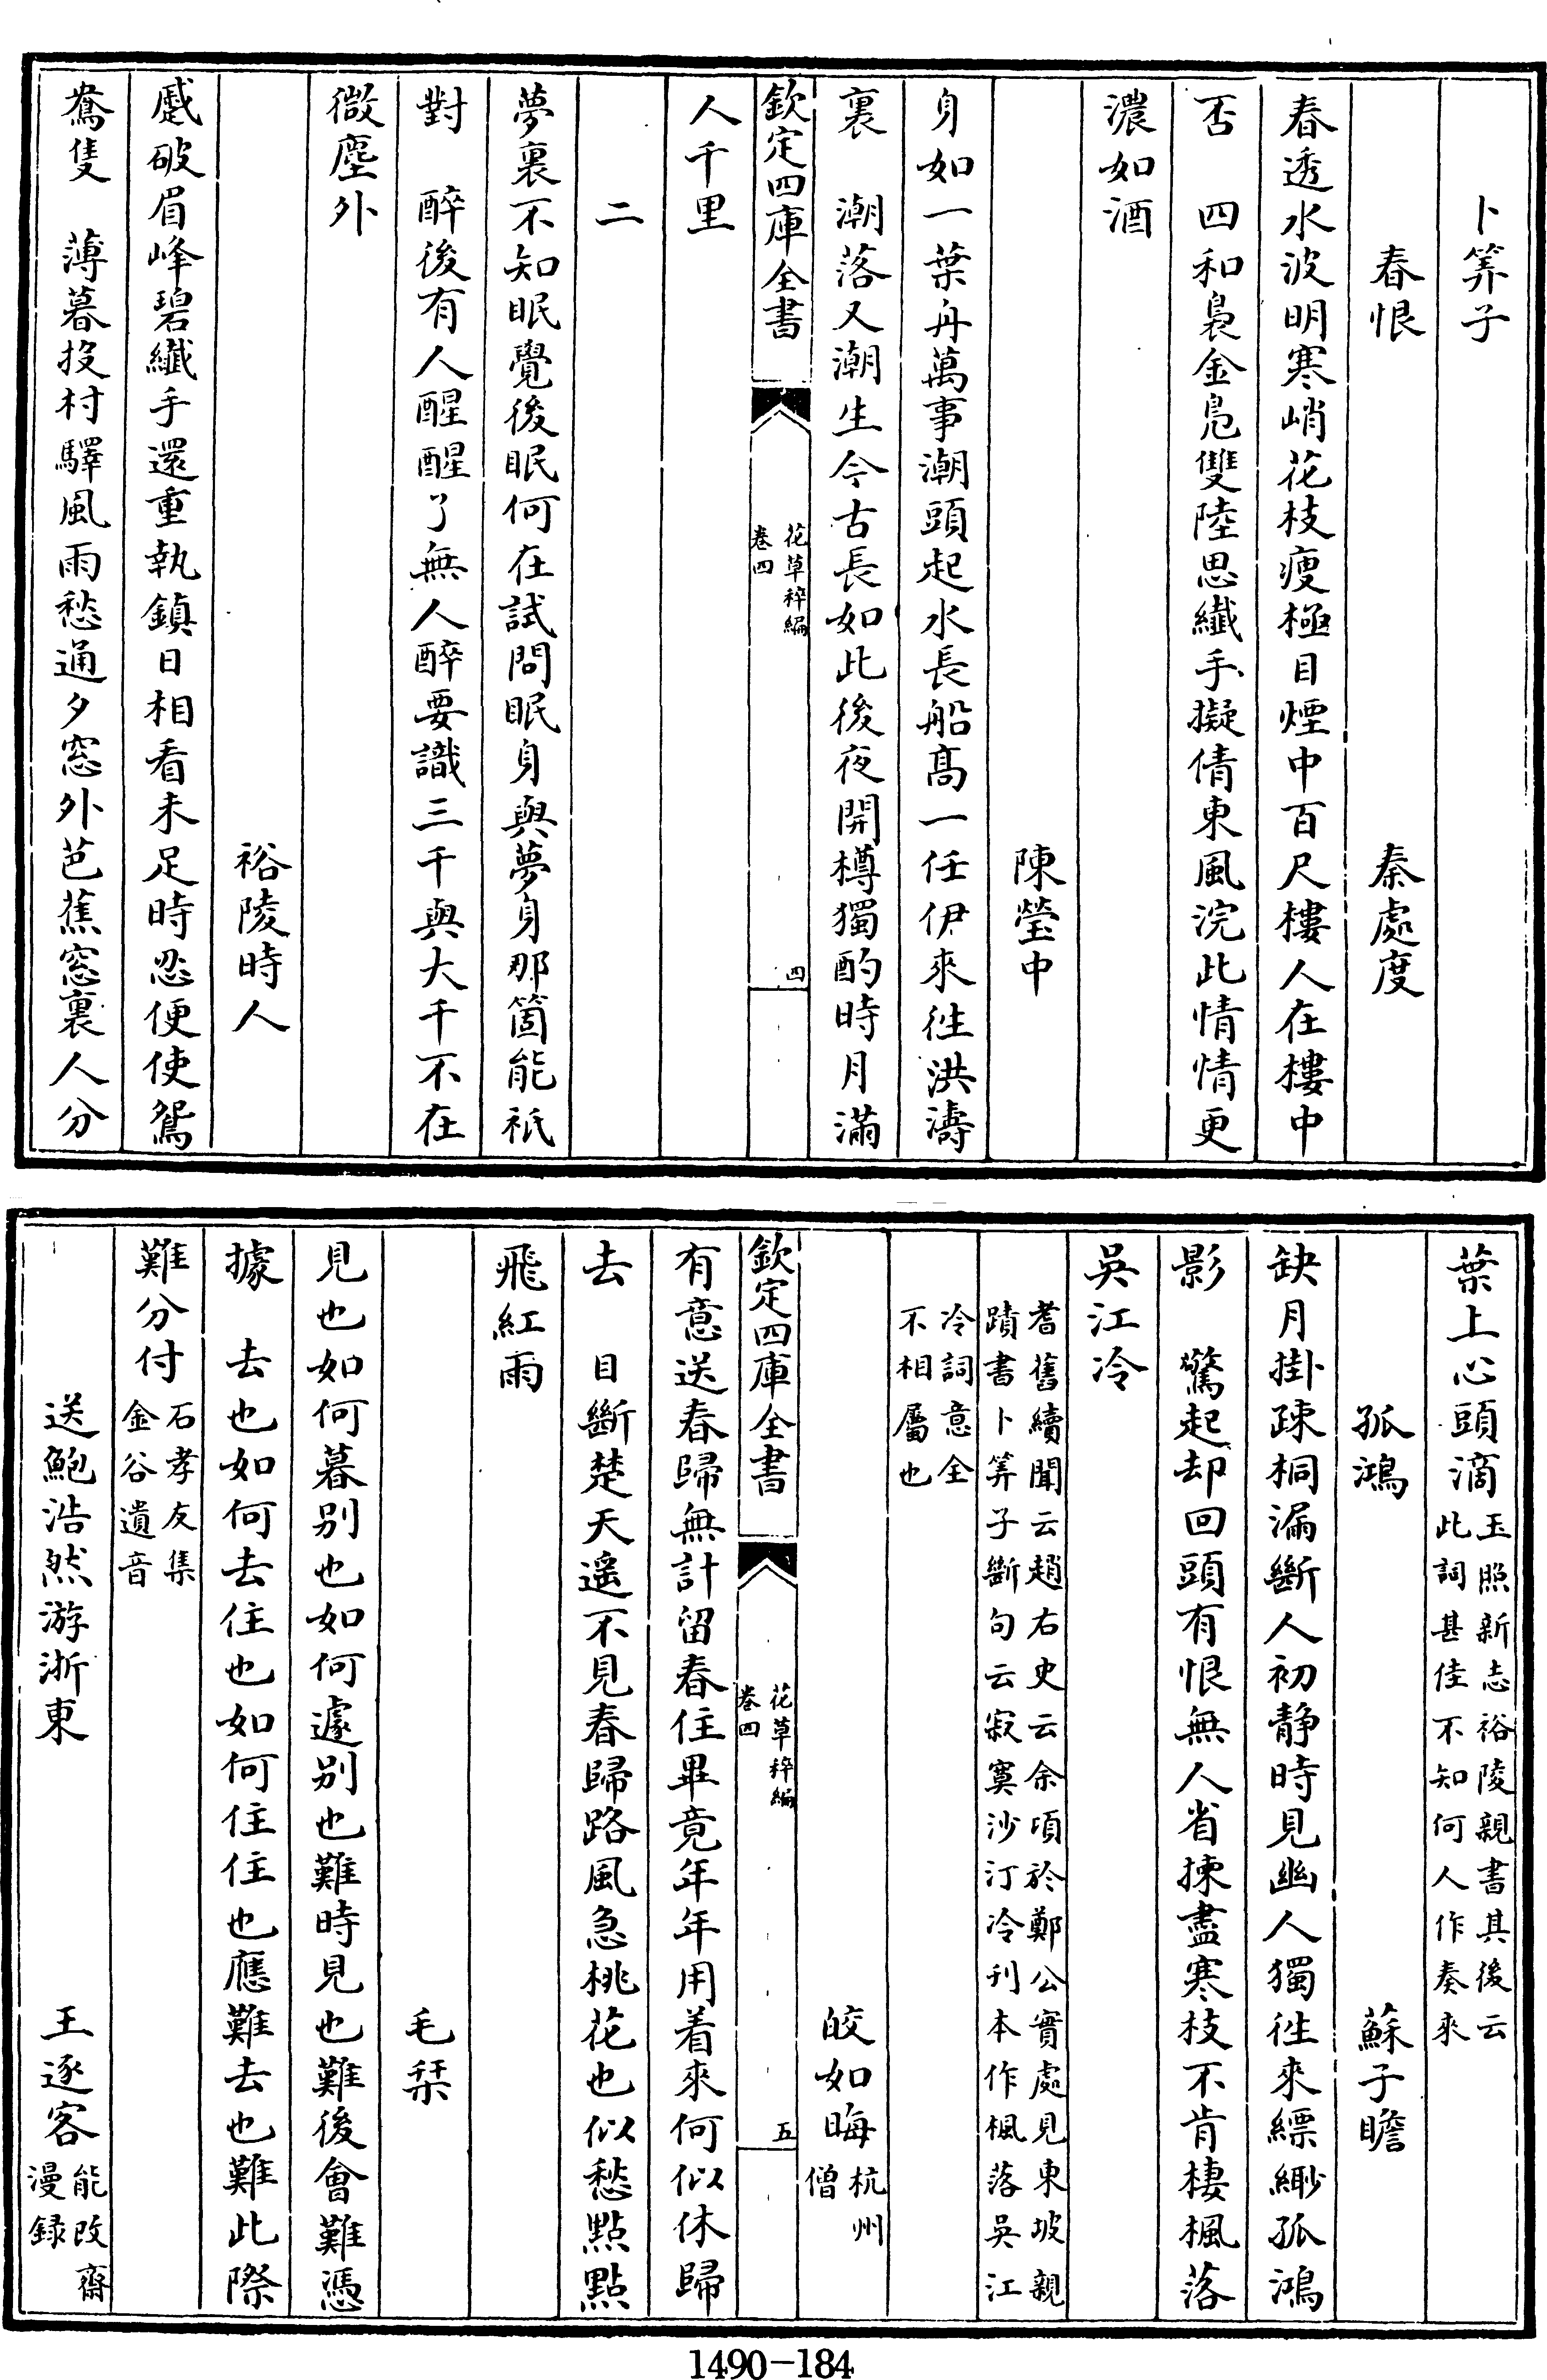 卜筭子
春恨　秦處度
春透水波明寒峭花枝瘦極目煙中百尺樓人在樓中
否　四和裊金鳬雙陸思纖手擬倩東風浣此情情更
濃如酒
陳瑩中
身如一葉舟萬事潮頭起水長船髙一任伊來徃洪濤
裏　潮落又潮生今古長如此後夜開樽獨酌時月滿
欽定四庫全書
花草稡編
卷四
四
人千里
二
夢裏不知眠覺後眠何在試問眠身與夢身那箇能祇
對　醉後有人醒醒了無人醉要識三千與大千不在
微塵外
裕陵時人
蹙破眉峰碧纖手還重執鎮日相看未足時忍便使鴛
鴦隻　薄暮投村驛風雨愁通夕窓外芭蕉窓裏人分
葉上心頭滴玉照新志裕陵親書其後云
此詞甚佳不知何人作奏來
孤鴻　蘇子瞻
缺月掛疎桐漏斷人初静時見幽人獨徃來縹緲孤鴻
影　驚起却回頭有恨無人省揀盡寒枝不肯棲楓落
吳江冷
耆舊續聞云趙右史云余頃於鄭公實處見東坡親
蹟書卜筭子斷句云寂寞沙汀冷刋本作楓落吳江
冷詞意全
不相屬也
皎如晦杭州
僧
欽定四庫全書
花草稡編
卷四
五
有意送春歸無計留春住畢竟年年用着來何似休歸
去　目斷楚天遥不見春歸路風急桃花也似愁點點
飛紅雨
毛栞
見也如何暮别也如何遽别也難時見也難後會難憑
據　去也如何去住也如何住住也應難去也難此際
難分付石孝友集
金谷遺音
送鮑浩然游浙東　王逐客能改齋
漫録
1490-184